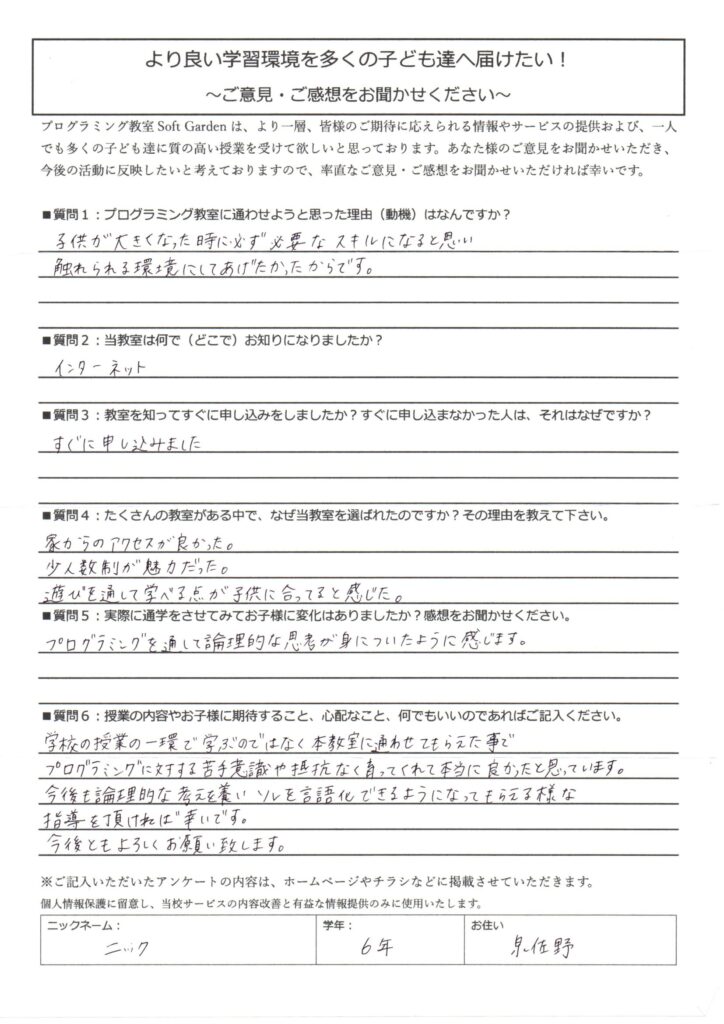 より良い学習環境を多くの子ども達へ届けたい！
～ご意見・ご感想をお聞かせください～
プログラミング教室 Soft Garden は、より一層、皆様のご期待に応えられる情報やサービスの提供および、一人
でも多くの子ども達に質の高い授業を受けて欲しいと思っております。あなた様のご意見をお聞かせいただき、
今後の活動に反映したいと考えておりますので、率直なご意見・ご感想をお聞かせいただければ幸いです。
■質問１：プログラミング教室に通わせようと思った理由（動機）はなんですか？
子供が大きくなった時に必ず必要なスキルになると思い
触れられる環境にしてあげたかったからです。
■質問２：当教室は何で（どこで）お知りになりましたか？
インターネット
■質問３：教室を知ってすぐに申し込みをしましたか？すぐに申し込まなかった人は、それはなぜですか？
すぐに申し込みました
■質問４：たくさんの教室がある中で、なぜ当教室を選ばれたのですか？その理由を教えて下さい。
家からのアクセスが良かった。
少人数制が魅力だった。
遊びを通して学べる点が子供に合ってると感じた。
■質問５：実際に通学をさせてみてお子様に変化はありましたか？感想をお聞かせください。
プログラミングを通して論理的な思考が身についたように感じます。
■質問６：授業の内容やお子様に期待すること、心配なこと、何でもいいのであればご記入ください。
学校の授業の一環で学ぶのではなく本教室に通わせてもらえた事で
プログラミングに対する苦手意識や抵抗なく育ってくれて本当に良かったと思っています。
今後も論理的な考えを養いソレを言語化できるようになってもらえる様な
指導を頂ければ幸いです。
今後ともよろしくお願い致します。
※ご記入いただいたアンケートの内容は、ホームページやチラシなどに掲載させていただきます。
個人情報保護に留意し、当校サービスの内容改善と有益な情報提供のみに使用いたします。
ニックネーム： 学年： お住い
ニック 6年 泉佐野